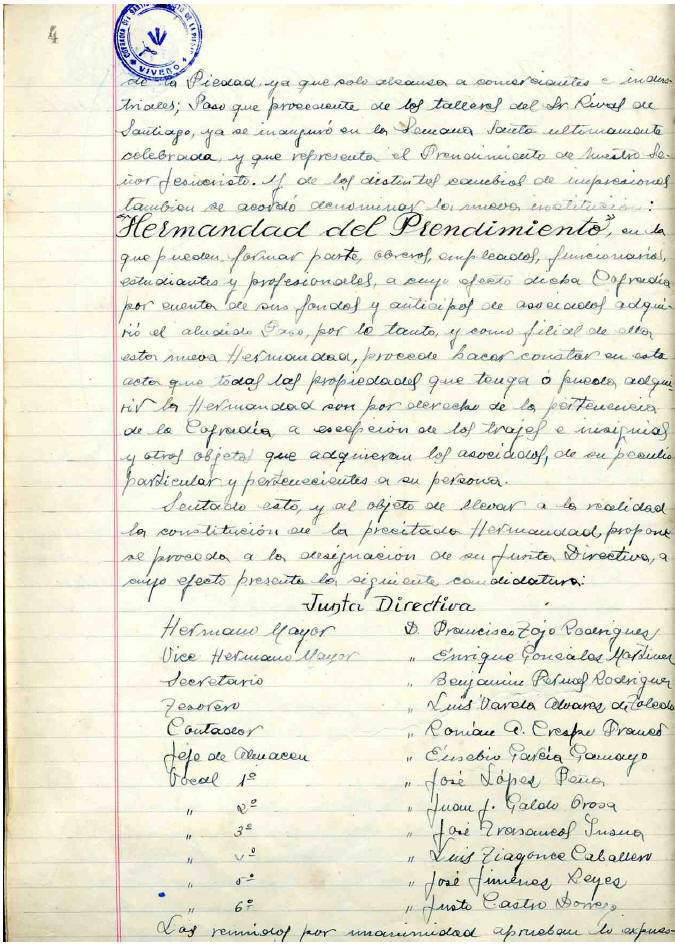 4
COFRADIA DEL SANTISIMO CRISTO DE LA PIEDAD
VIVERO
de la Piedad, ya que solo alcanza a comerciantes e indus-
triales; Paso que procedente de los talleres del Sr. Rivas de
Santiago, ya se inauguró en la Semana Santa ultimamente
celebrada, y que representa el Prendimiento de Nuestro Se-
ñor Jesucristo. Y de los distintos cambios de impresiones
tambien se acordó denominar la nueva institución:
"Hermandad del Prendimiento", en la
que pueden formar parte, obreros, empleados, funcionarios,
estudiantes y profesionales, a cuyo efecto dicha Cofradía
por cuenta de sus fondos y anticipos de asociados adqui-
rió el aludido Paso, por lo tanto, y como filial de ella
esta nueva Hermandad, procede hacer constar en esta
acta que todas las propiedades que tenga ó pueda adqui-
rir la Hermandad son por derecho de la pertenencia
de la Cofradía, a escepción de los trajes e insignias
y otros objetos que adquieran los asociados, de su peculio
particular y pertenecientes a su persona.
Sentado esto, y al objeto de llevar a la realidad
la constitución de la precitada Hermandad, propone
se proceda a la designación de su Junta Directiva, a
cuyo efecto presenta la siguiente candidatura:
Junta Directiva
Hermano Mayor D. Francisco Zojo Rodriguez
Vice Hermano Mayor " Enrique Gonzalez Martinez
Secretario " Benjamin Pernas Rodriguez
Tesorero " Luis Varela Alvarez de Toledo
Contador " Román A. Crespo Franco
Jefe de Almacen " Eusebio García Gamayo
Vocal 1º " José López Peña
" 2º " Juan J. Galdo Orosa
" 3º " José Trasancos
" 4º " Luis Caballero
" 5º " José Jimenez Reyes
" 6º " Justo Castro
Los reunidos por unanimidad aprueban lo expues-